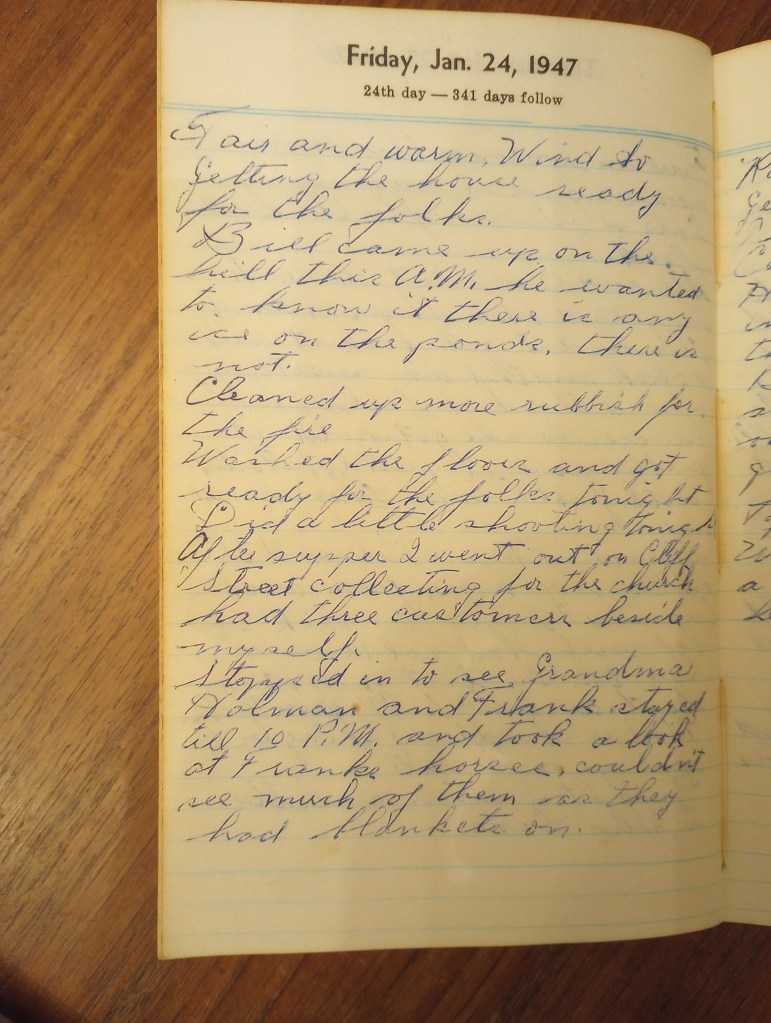 Friday, Jan. 24, 1947
24th day — 341 days follow
Fair and warm, Wind
Getting the house ready
for the folks.
Bill came up on the
hill this A.M. he wanted
to know if there is any
ice on the ponds, there is
not.
Cleaned up more rubbish for
the fire
Washed the floors and got
ready for the folks tonight
Did a little shooting
After supper I went out on Cliff
Street collecting for the church
had three customers beside
myself.
Stopped in to see Grandma
Holman and Frank stayed
till 10 P.M. and took a look
at Franks horses, couldn't
see much of them as they
had blankets on.